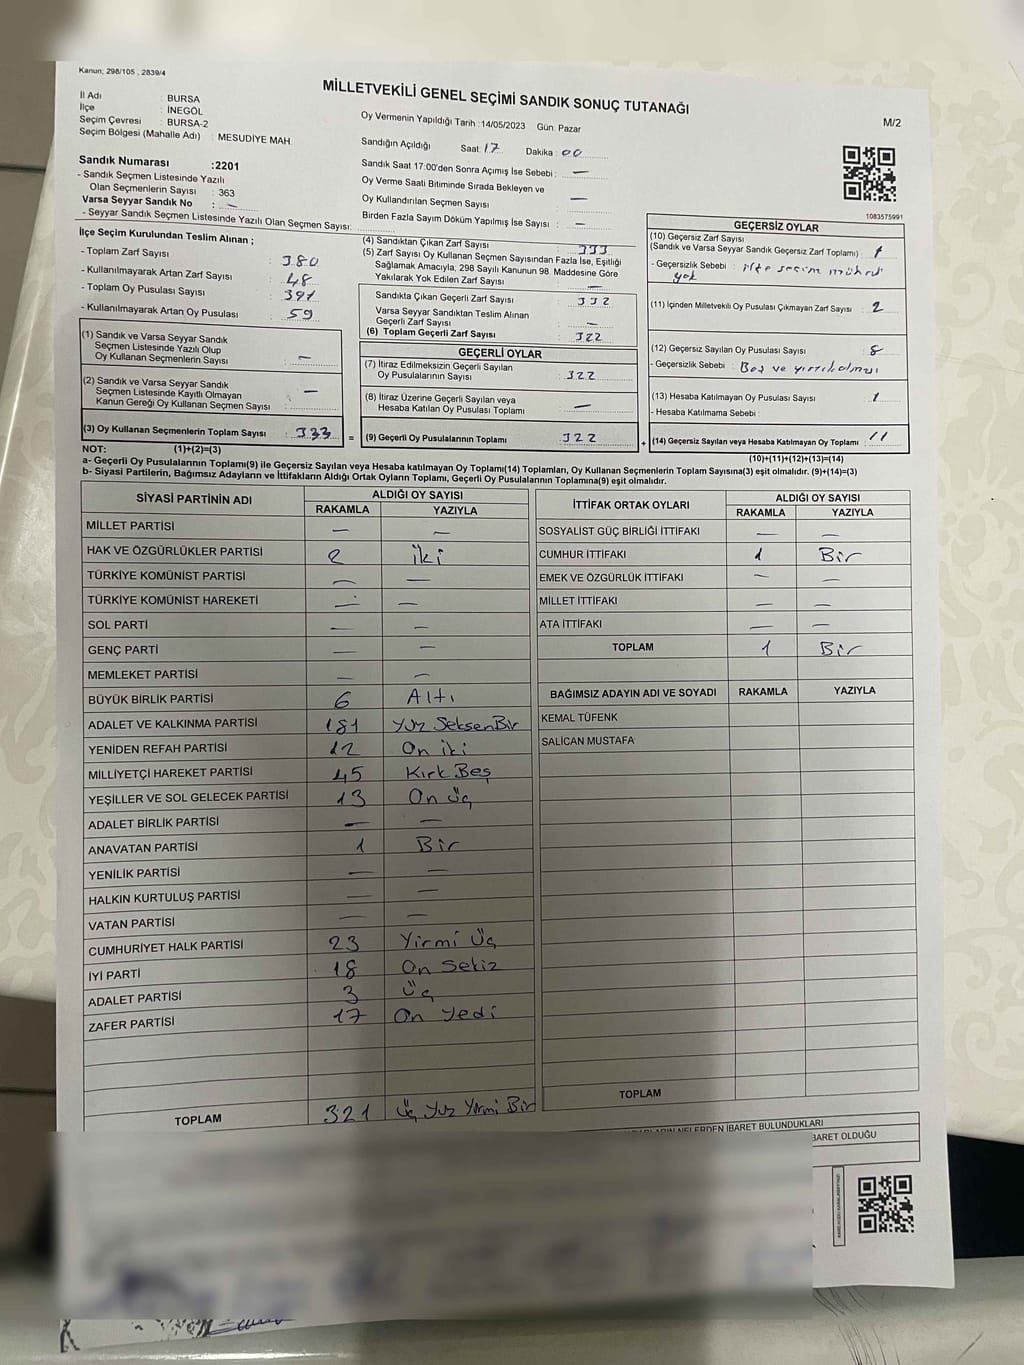 Kanun; 298/105 , 2839/4
MİLLETVEKİLİ GENEL SEÇİMİ SANDIK SONUÇ TUTANAĞI
M/2
İl Adı : BURSA
İlçe : İNEGÖL
Seçim Çevresi : BURSA-2
Seçim Bölgesi (Mahalle Adı) : MESUDİYE MAH.
Sandık Numarası :2201
- Sandık Seçmen Listesinde Yazılı
Olan Seçmenlerin Sayısı : 363
Varsa Seyyar Sandık No : —
- Seyyar Sandık Seçmen Listesinde Yazılı Olan Seçmen Sayısı:
Oy Vermenin Yapıldığı Tarih :14/05/2023 Gün: Pazar
Sandığın Açıldığı Saat 17 Dakika : 00
Sandık Saat 17:00'den Sonra Açımış İse Sebebi : —
Oy Verme Saati Bitiminde Sırada Bekleyen ve
Oy Kullandırılan Seçmen Sayısı : —
Birden Fazla Sayım Döküm Yapılmış İse Sayısı : —
1083575991
İlçe Seçim Kurulundan Teslim Alınan ;
- Toplam Zarf Sayısı : 380
- Kullanılmayarak Artan Zarf Sayısı : 48
- Toplam Oy Pusulası Sayısı : 391
- Kullanılmayarak Artan Oy Pusulası : 59
(1) Sandık ve Varsa Seyyar Sandık
Seçmen Listesinde Yazılı Olup
Oy Kullanan Seçmenlerin Sayısı : —
(2) Sandık ve Varsa Seyyar Sandık
Seçmen Listesinde Kayıtlı Olmayan
Kanun Gereği Oy Kullanan Seçmen Sayısı : —
(3) Oy Kullanan Seçmenlerin Toplam Sayısı : 333
(4) Sandıktan Çıkan Zarf Sayısı : 333
(5) Zarf Sayısı Oy Kullanan Seçmen Sayısından Fazla İse, Eşitliği
Sağlamak Amacıyla; 298 Sayılı Kanunun 98. Maddesine Göre
Yakılarak Yok Edilen Zarf Sayısı : —
Sandıkta Çıkan Geçerli Zarf Sayısı : 332
Varsa Seyyar Sandıktan Teslim Alınan
Geçerli Zarf Sayısı : —
(6) Toplam Geçerli Zarf Sayısı : 322
GEÇERLİ OYLAR
(7) İtiraz Edilmeksizin Geçerli Sayılan
Oy Pusulalarının Sayısı : 322
(8) İtiraz Üzerine Geçerli Sayılan veya
Hesaba Katılan Oy Pusulası Toplamı : —
= (9) Geçerli Oy Pusulalarının Toplamı : 322
GEÇERSİZ OYLAR
(10) Geçersiz Zarf Sayısı
(Sandık ve Varsa Seyyar Sandık Geçersiz Zarf Toplamı) : 1
- Geçersizlik Sebebi : ilçe seçim mührü
yok
(11) İçinden Milletvekili Oy Pusulası Çıkmayan Zarf Sayısı : 2
(12) Geçersiz Sayılan Oy Pusulası Sayısı : 8
- Geçersizlik Sebebi : Boş ve yırtık olması
(13) Hesaba Katılmayan Oy Pusulası Sayısı : 1
- Hesaba Katılmama Sebebi :
+ (14) Geçersiz Sayılan veya Hesaba Katılmayan Oy Toplamı : 11
NOT: (1)+(2)=(3)
(10)+(11)+(12)+(13)=(14)
a- Geçerli Oy Pusulalarının Toplamı(9) ile Geçersiz Sayılan veya Hesaba katılmayan Oy Toplamı(14) Toplamları, Oy Kullanan Seçmenlerin Toplam Sayısına(3) eşit olmalıdır. (9)+(14)=(3)
b- Siyasi Partilerin, Bağımsız Adayların ve İttifakların Aldığı Ortak Oyların Toplamı, Geçerli Oy Pusulalarının Toplamına(9) eşit olmalıdır.
SİYASİ PARTİNİN ADI ALDIĞI OY SAYISI
RAKAMLA YAZIYLA
MİLLET PARTİSİ — —
HAK VE ÖZGÜRLÜKLER PARTİSİ 2 iki
TÜRKİYE KOMÜNİST PARTİSİ — —
TÜRKİYE KOMÜNİST HAREKETİ — —
SOL PARTİ — —
GENÇ PARTİ — —
MEMLEKET PARTİSİ — —
BÜYÜK BİRLİK PARTİSİ 6 Altı
ADALET VE KALKINMA PARTİSİ 181 Yüz SeksenBir
YENİDEN REFAH PARTİSİ 12 On iki
MİLLİYETÇİ HAREKET PARTİSİ 45 Kırk Beş
YEŞİLLER VE SOL GELECEK PARTİSİ 13 On Üç
ADALET BİRLİK PARTİSİ — —
ANAVATAN PARTİSİ 1 Bir
YENİLİK PARTİSİ — —
HALKIN KURTULUŞ PARTİSİ — —
VATAN PARTİSİ — —
CUMHURİYET HALK PARTİSİ 23 Yirmi Üç
İYİ PARTİ 18 On Sekiz
ADALET PARTİSİ 3 Üç
ZAFER PARTİSİ 17 On Yedi
TOPLAM 321 Üç Yüz Yirmi Bir
İTTİFAK ORTAK OYLARI ALDIĞI OY SAYISI
RAKAMLA YAZIYLA
SOSYALİST GÜÇ BİRLİĞİ İTTİFAKI — —
CUMHUR İTTİFAKI 1 Bir
EMEK VE ÖZGÜRLÜK İTTİFAKI — —
MİLLET İTTİFAKI — —
ATA İTTİFAKI — —
TOPLAM 1 Bir
BAĞIMSIZ ADAYIN ADI VE SOYADI RAKAMLA YAZIYLA
KEMAL TÜFENK
SALİCAN MUSTAFA
TOPLAM
NELERDEN İBARET BULUNDUKLARI
BARET OLDUĞU